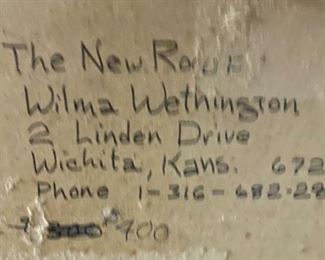 The New
Wilma Wethington
2 Linden Drive
Wichita, Kans. 672
Phone 1-316-682-29
$400